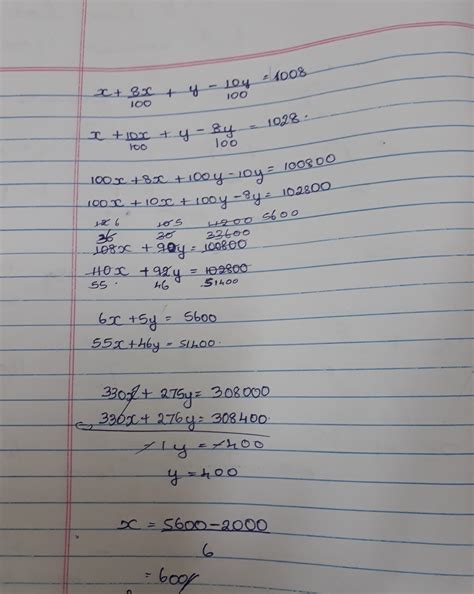 x + 8x/100 + y - 10y/100 = 1008
x + 10x/100 + y - 8y/100 = 1028.
100x + 8x + 100y - 10y = 100800
100x + 10x + 100y - 8y = 102800
6 5 5600
36 30 33600
108x + 90y = 100800
110x + 92y = 102800
55. 46 51400
6x + 5y = 5600
55x + 46y = 51400.
330x + 275y = 308000
330x + 276y = 308400
-1y = -400
y = 400
x = 5600 - 2000
6
= 600